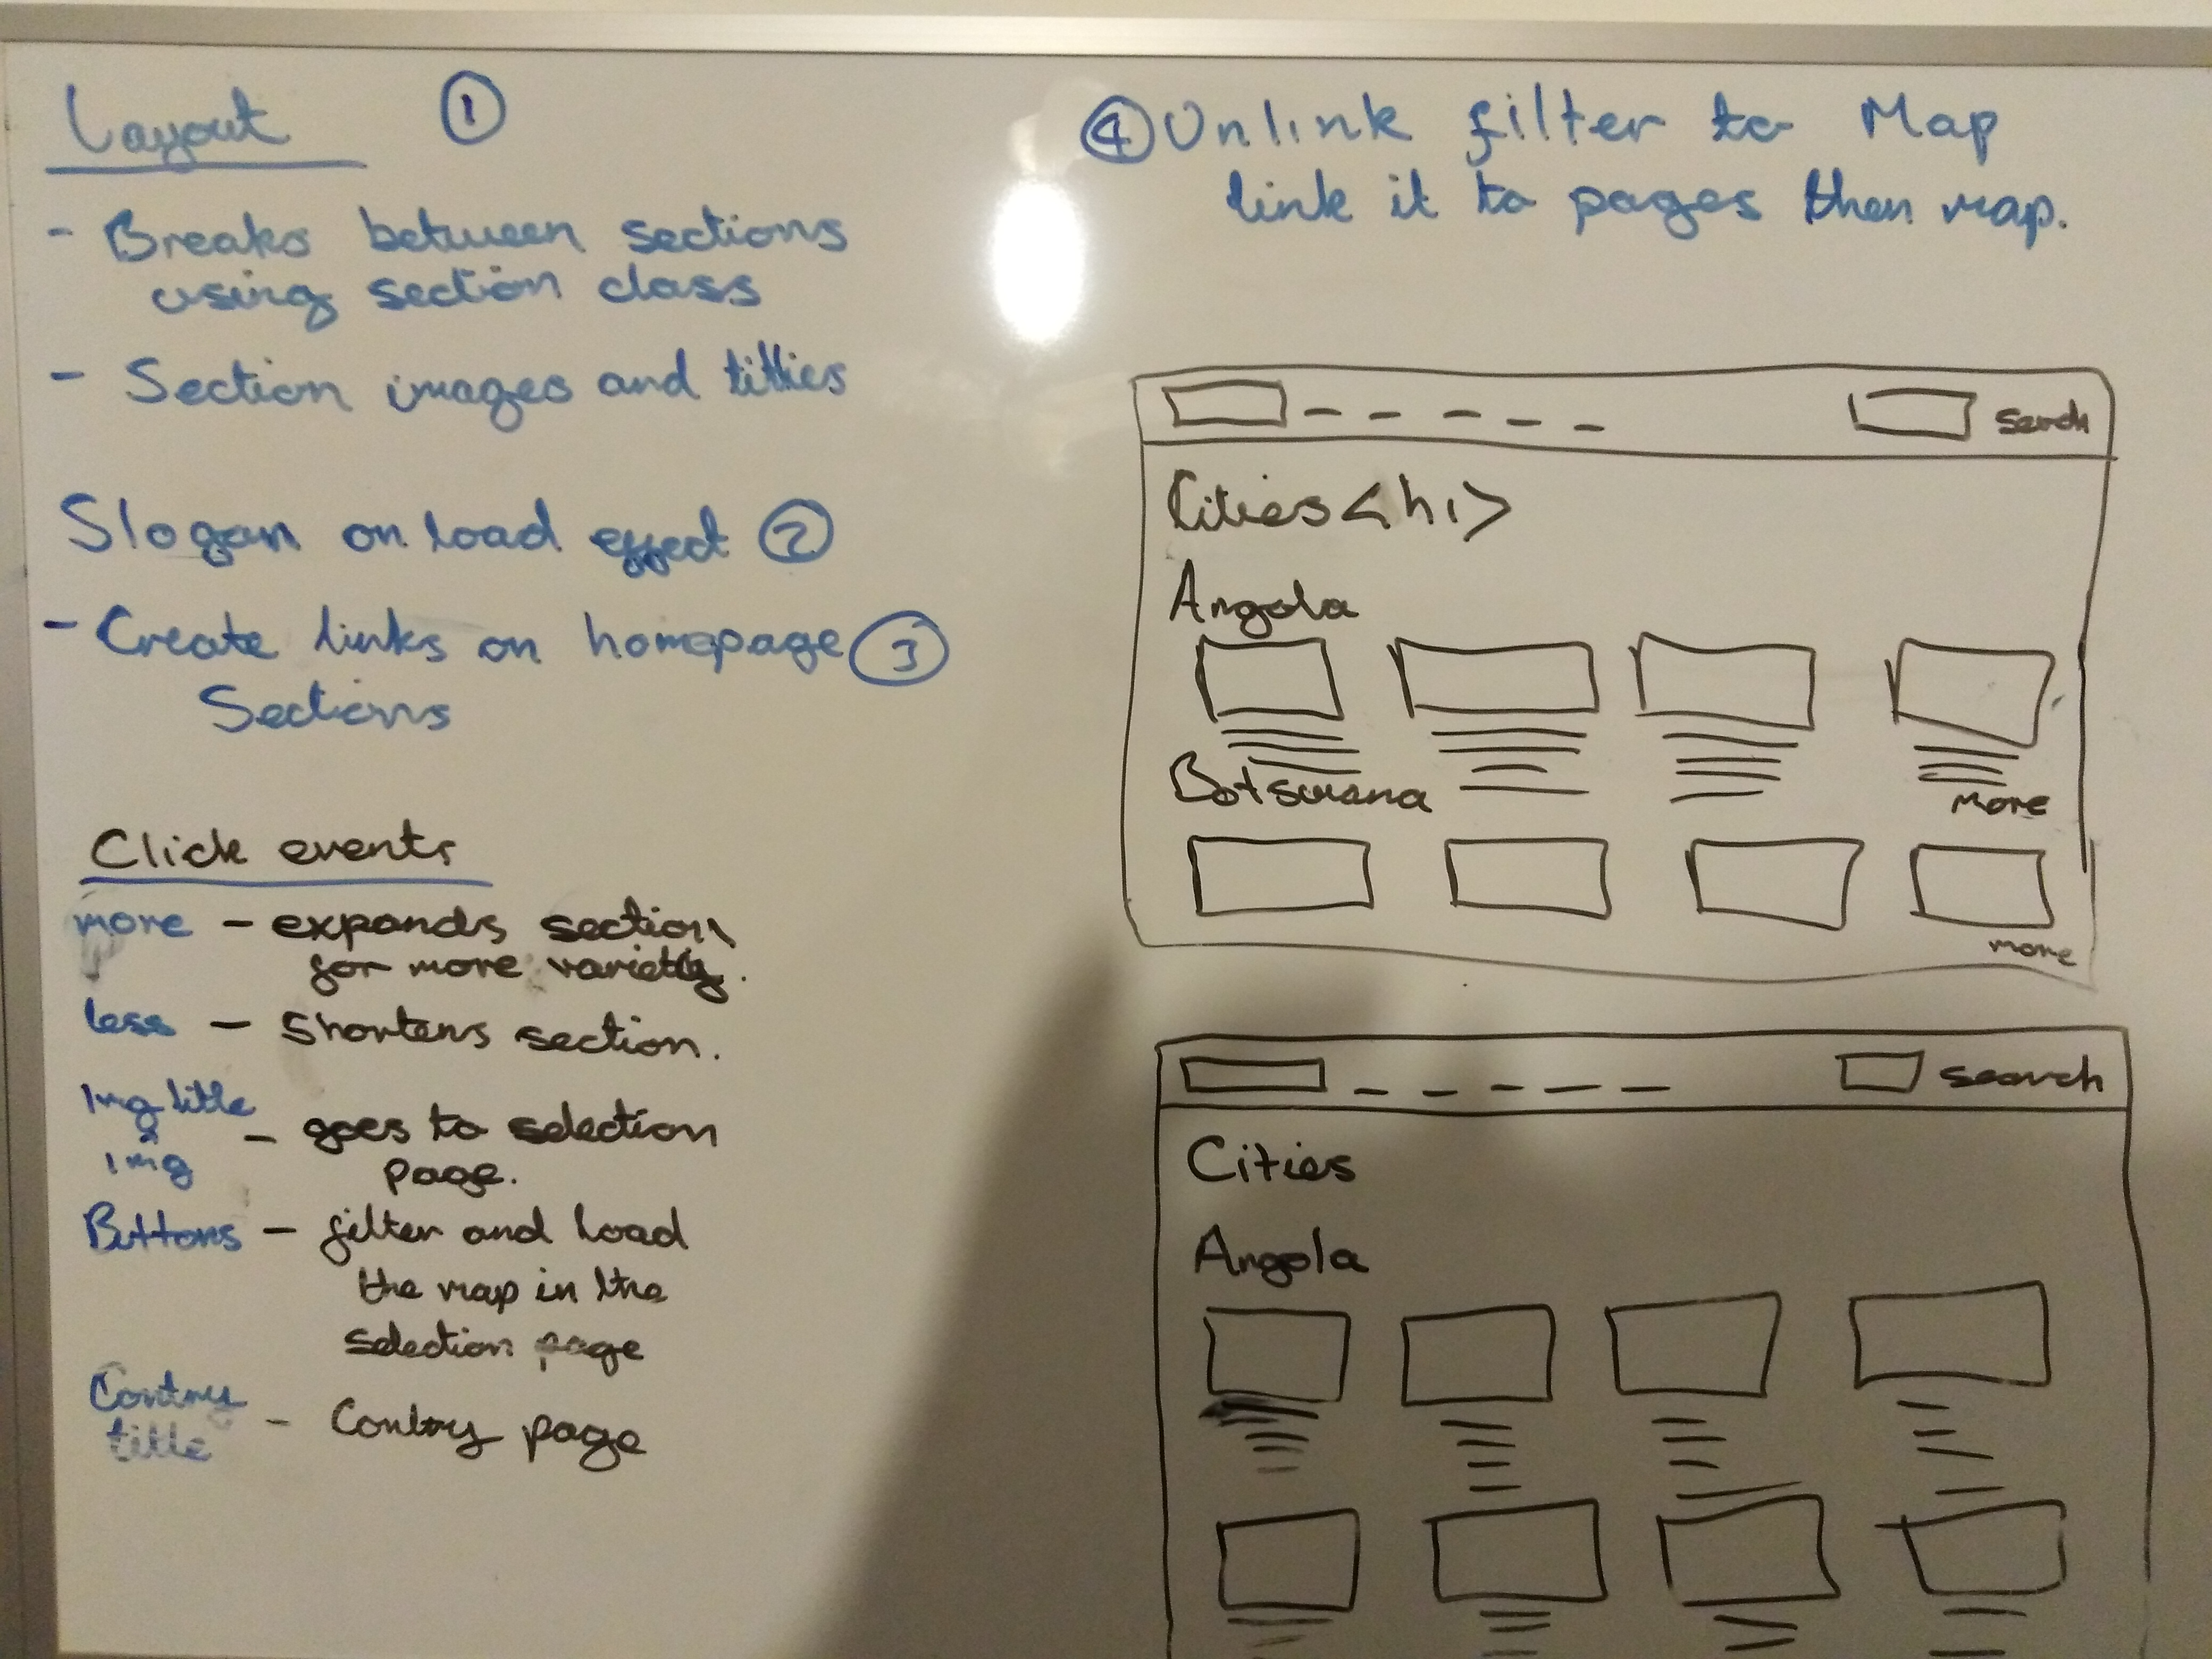 Layout ①
- Breaks between sections
using section class
- Section images and titles
Slogan on load effect ②
- Create links on homepage ③
Sections
Click events
more - expands section
for more variety.
less - Shortens section.
Img title
img - goes to selection
page.
Buttons - filter and load
the map in the
selection page
Contry
title - Contry page
④ Unlink filter to Map
link it to pages then map.
serch
Cities <h1>
Angola
Botswana
more
more
search
Cities
Angola